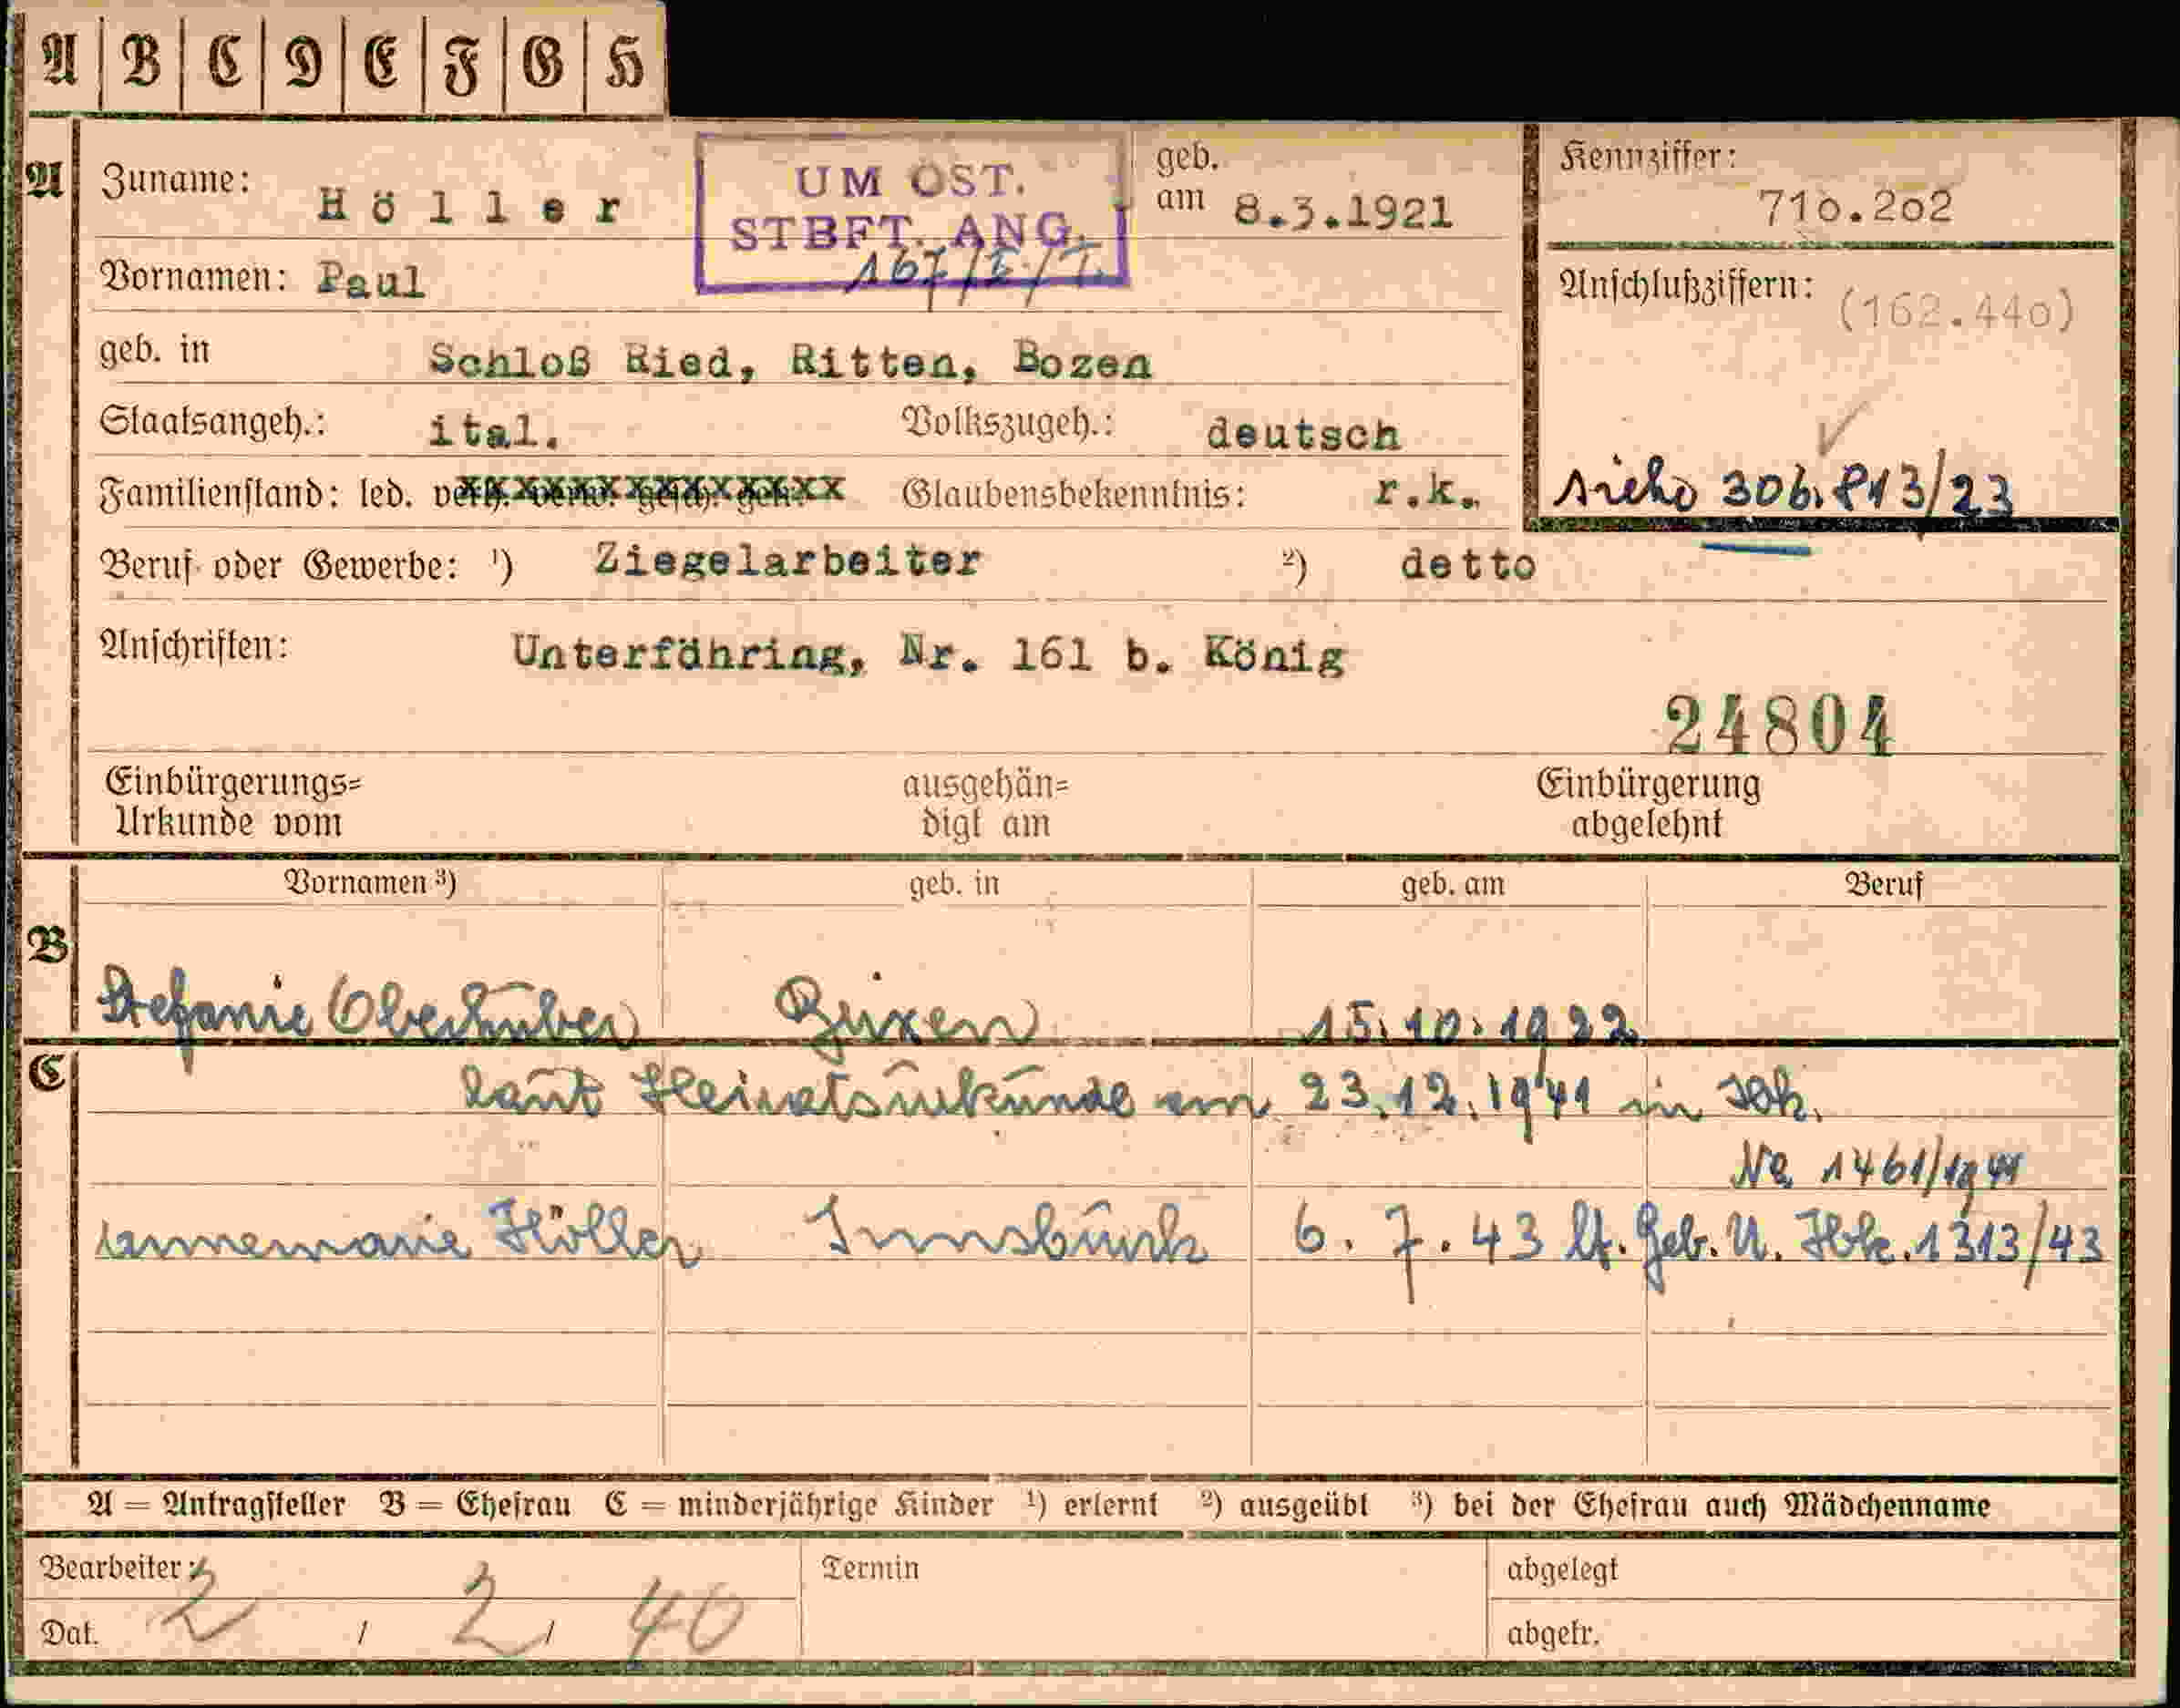 A B C D E F G H
A
Zuname: Höller
UM ÖST.
STBFT. ANG.
167/I./T.
geb. am 8.3.1921
Kennziffer: 710.202
Vornamen: Paul
Anschlußziffern: (162.440)
geb. in Schloß Ried, Ritten, Bozen
Staatsangeh.: ital. Volkszugeh.: deutsch
Familienstand: led. verh. verw. gesch. getr. Glaubensbekenntnis: r.k.
siehe 306.813/23
Beruf oder Gewerbe: ¹) Ziegelarbeiter ²) detto
Anschriften: Unterföhring, Nr. 161 b. König
24804
Einbürgerungs=
Urkunde vom
ausgehän=
digt am
Einbürgerung
abgelehnt
Vornamen ³) geb. in geb. am Beruf
B
Stefanie Oberhuber Brixen 15.10.1922
C
laut Heiratsurkunde am 23.12.1941 in Ibk.
No. 1461/1941
Annemarie Höller Innsbruck 6. 7. 43 lt. Geb. U. Ibk. 1313/43
A = Antragsteller B = Ehefrau C = minderjährige Kinder ¹) erlernt ²) ausgeübt ³) bei der Ehefrau auch Mädchenname
Bearbeiter: Termin abgelegt
Dat. 2 / 2 / 40 abgetr.